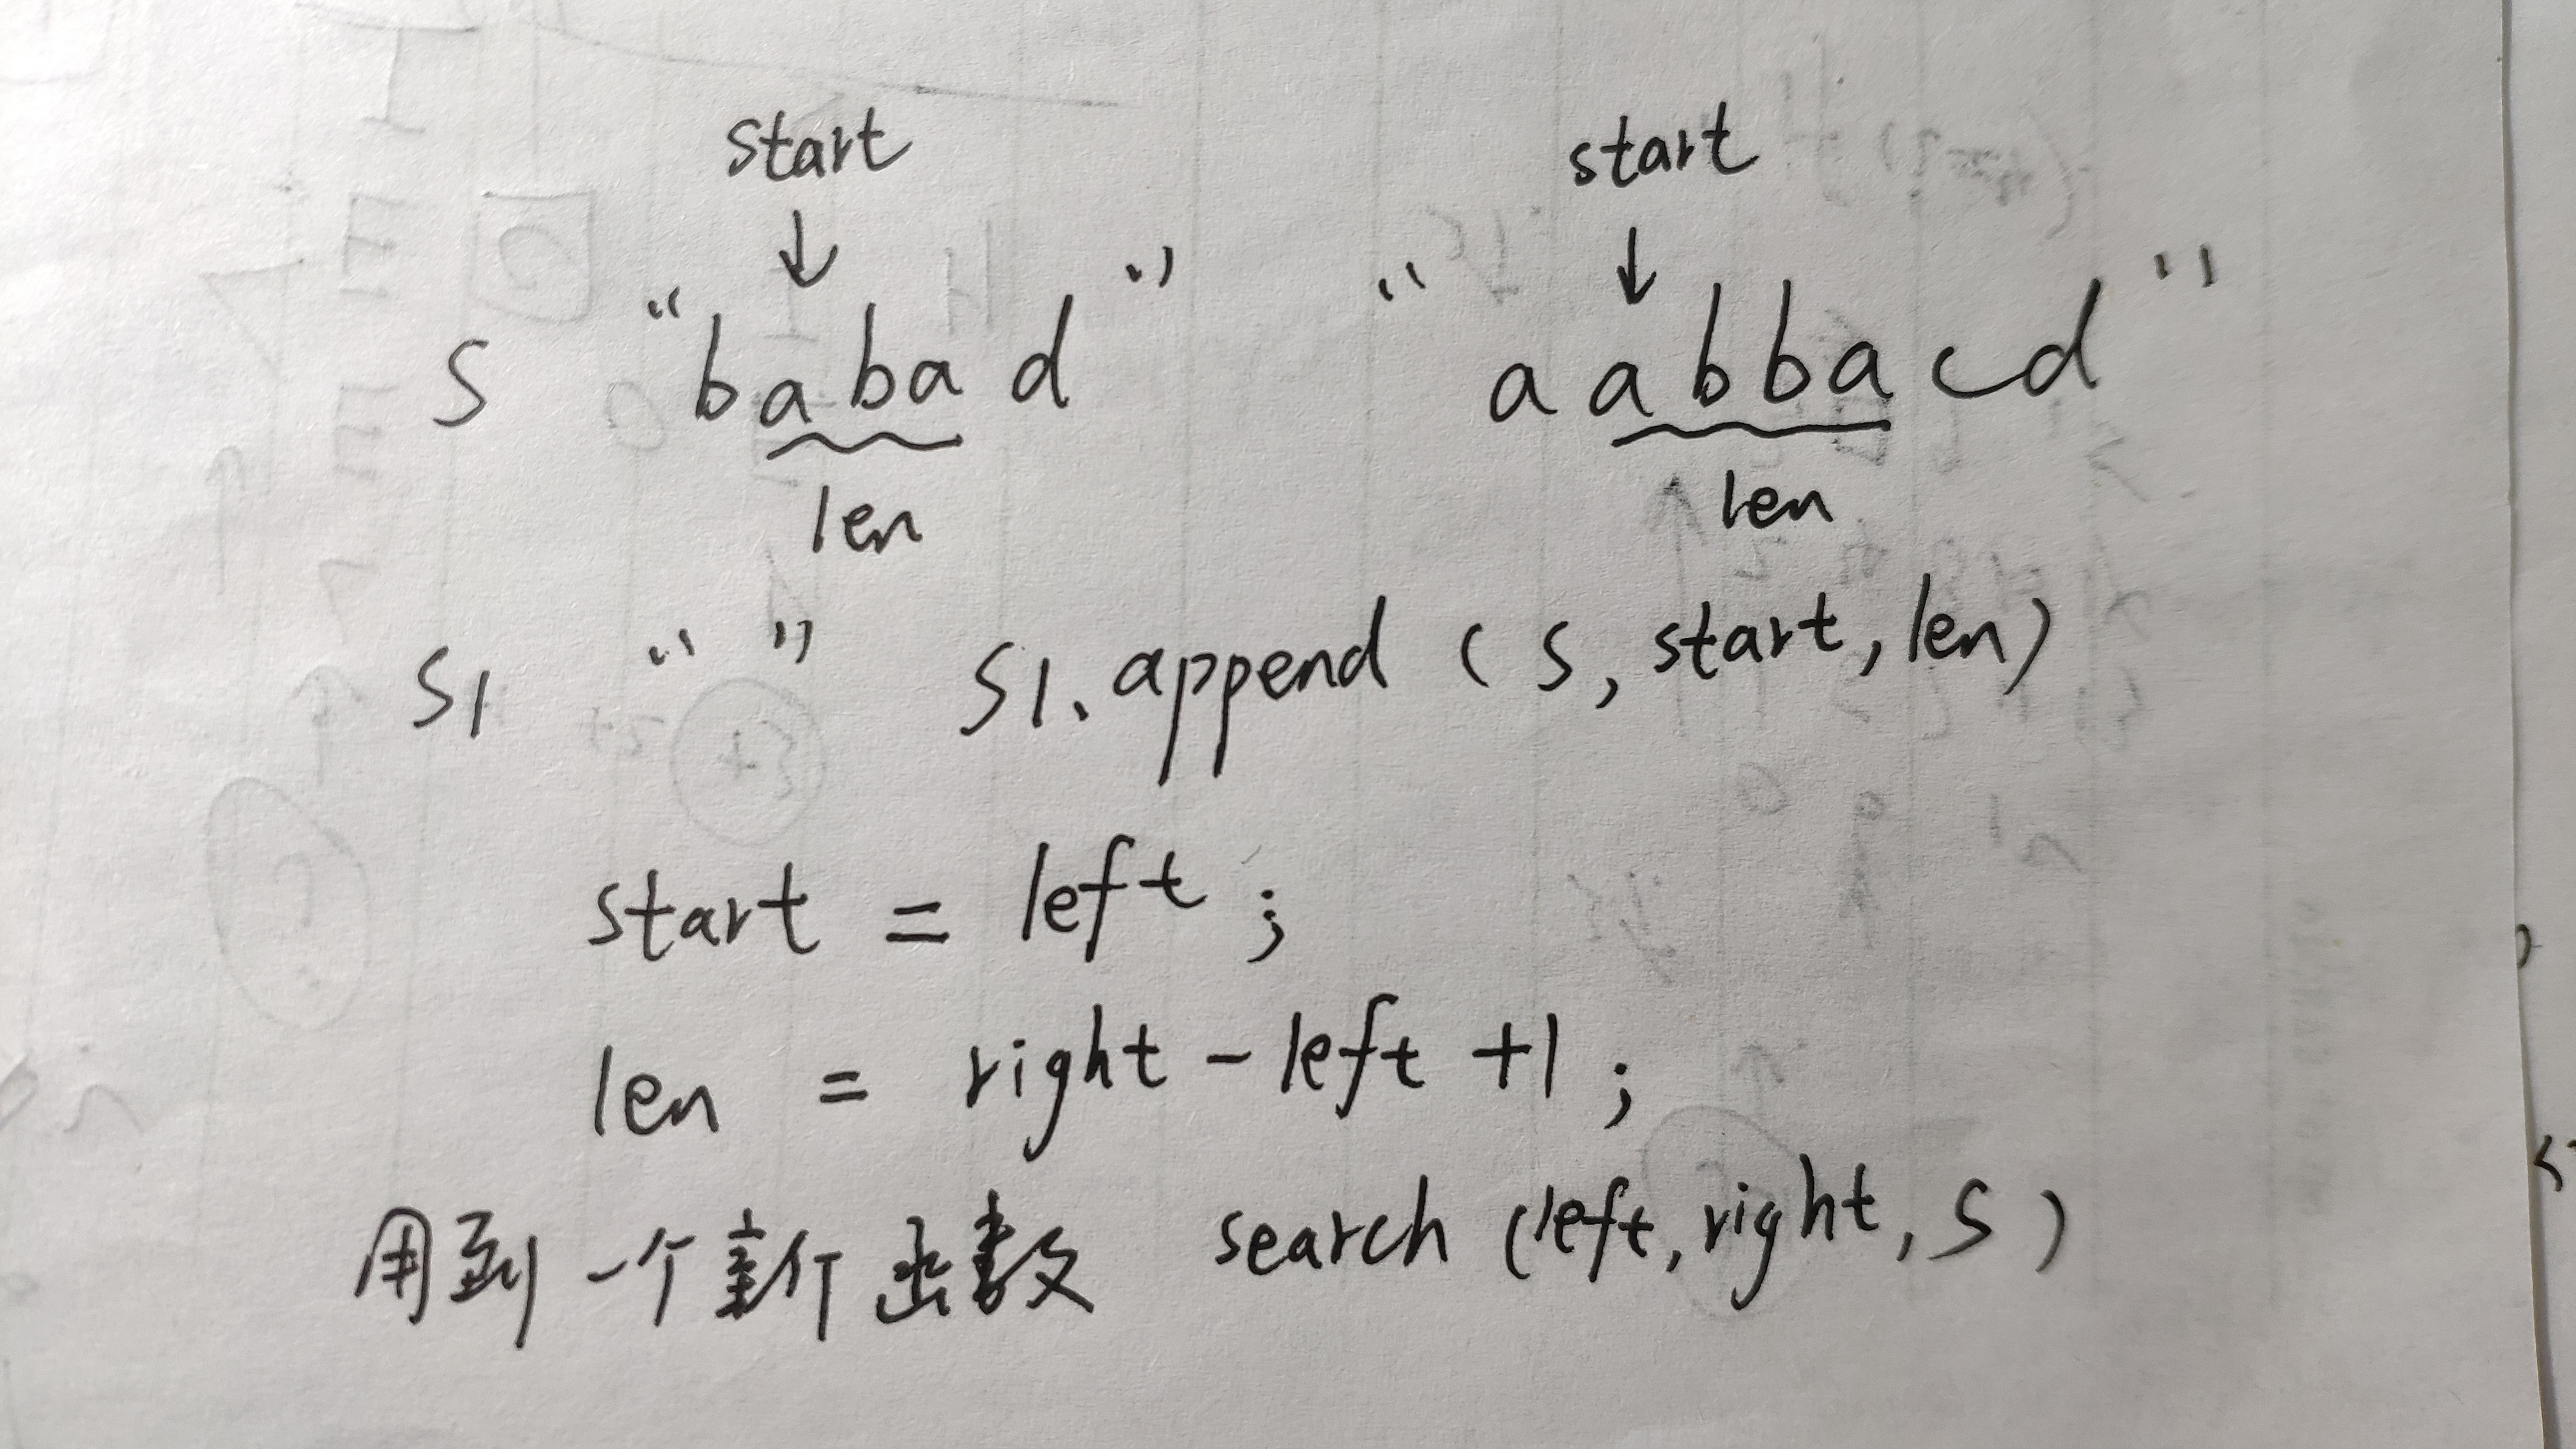 start start
↓ ↓
S “babad” “aabbacd”
len len
S1 “ ” S1.append (S, start, len)
start = left ;
len = right - left +1 ;
用到一个新函数 search (left, right, S)